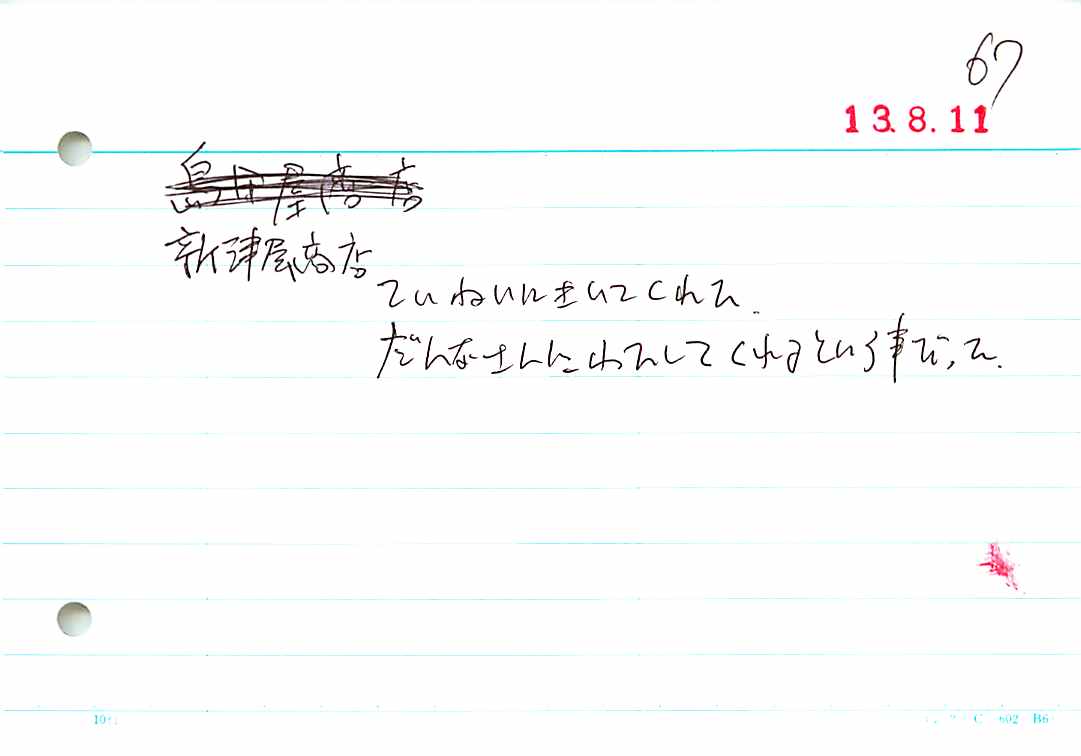 67
13.8.11
新津屋商店
ていねいにきいてくれた.
だんなさんにわたしてくれるという事だった.
C 602 B6